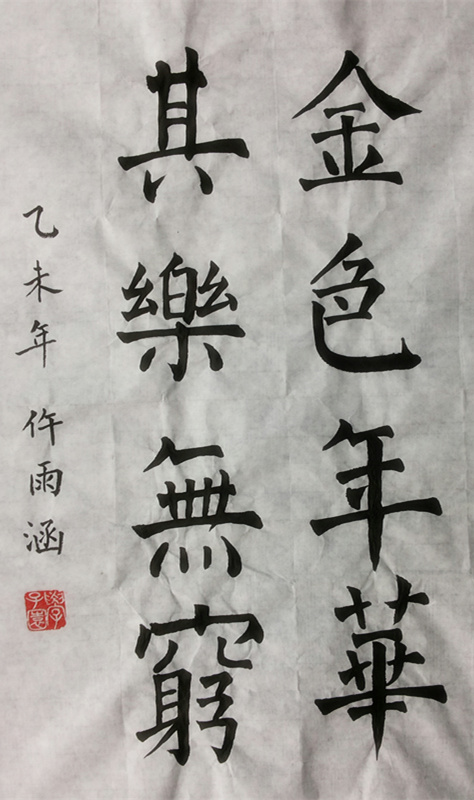 金色年華
其樂無窮
乙未年 仵雨涵